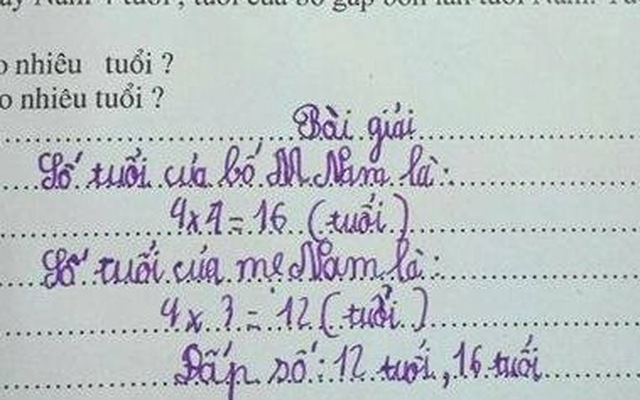 Nam 4 tuổi, tuổi của bố gấp bốn lần tuổi Nam.
nhiêu tuổi ?
nhiêu tuổi ?
Bài giải
Số tuổi của bố M Nam là:
4 x 4 = 16 (tuổi)
Số tuổi của mẹ Nam là:
4 x 3 = 12 (tuổi)
Đấp số: 12 tuổi, 16 tuổi